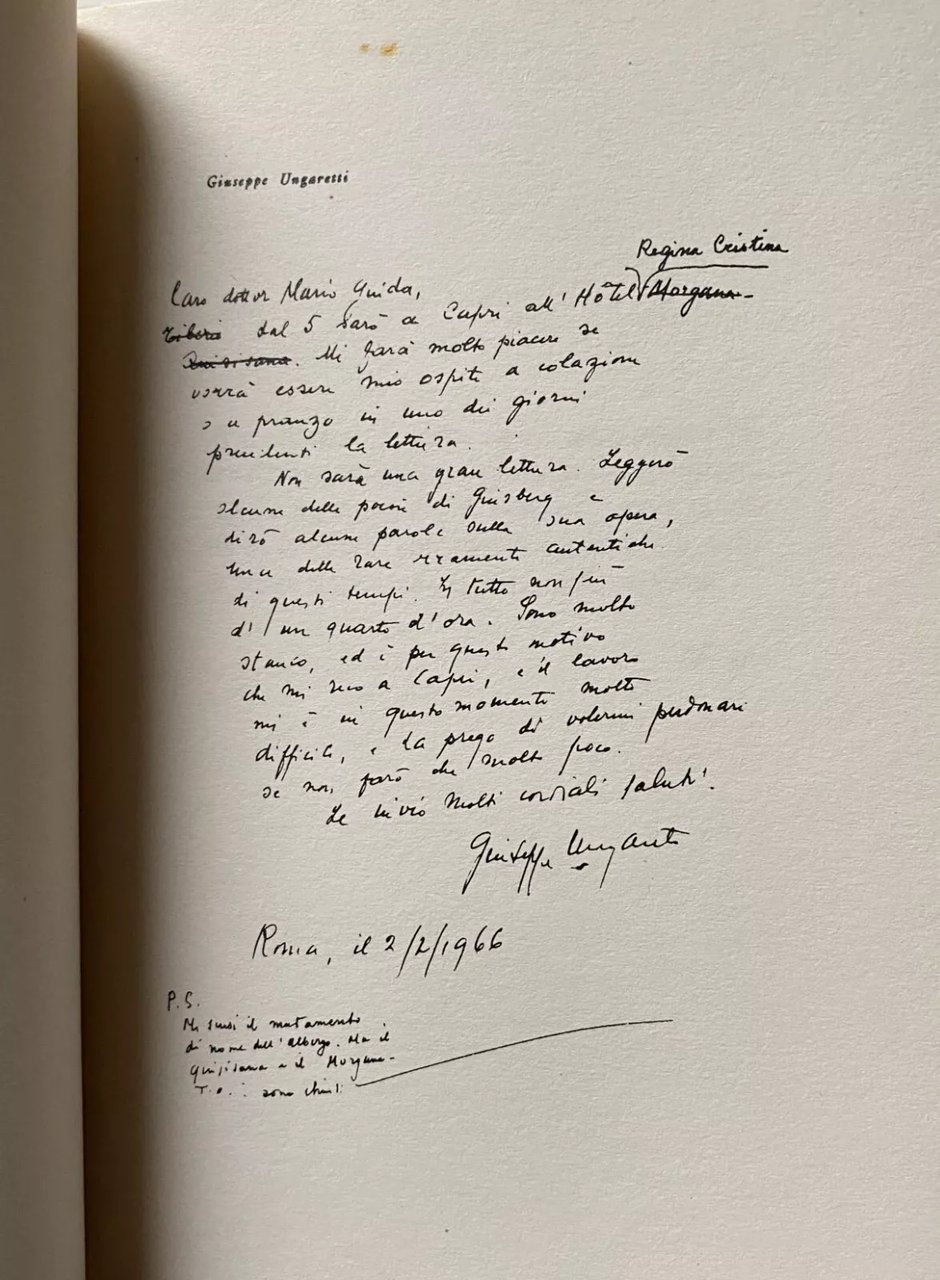 Giuseppe Ungaretti
Regina Cristina
Caro dottor Mario Guida,
dal 5 sarò a Capri all' Hôtel Morgana-
Tiberio
Quisisana. Mi farà molto piacere se
vorrà essere mio ospite a colazione
o a pranzo in uno dei giorni
precedenti la lettura.
Non sarà una gran lettura. Leggerò
alcune delle poesie di Ginsberg e
dirò alcune parole sulla sua opera,
una delle rare veramente autentiche
di questi tempi. In tutto non più
d'un quarto d'ora. Sono molto
stanco, ed è per questo motivo
che mi reco a Capri, e il lavoro
mi è in questo momento molto
difficile, e La prego di volermi perdonare
se non farò che molto poco.
Le invio molti cordiali saluti.
Giuseppe Ungaretti
Roma, il 2/2/1966
P.S.
Mi scusi il mutamento
di nome dell'albergo. Ma il
Quisisana e il Morgana-
sono chiusi